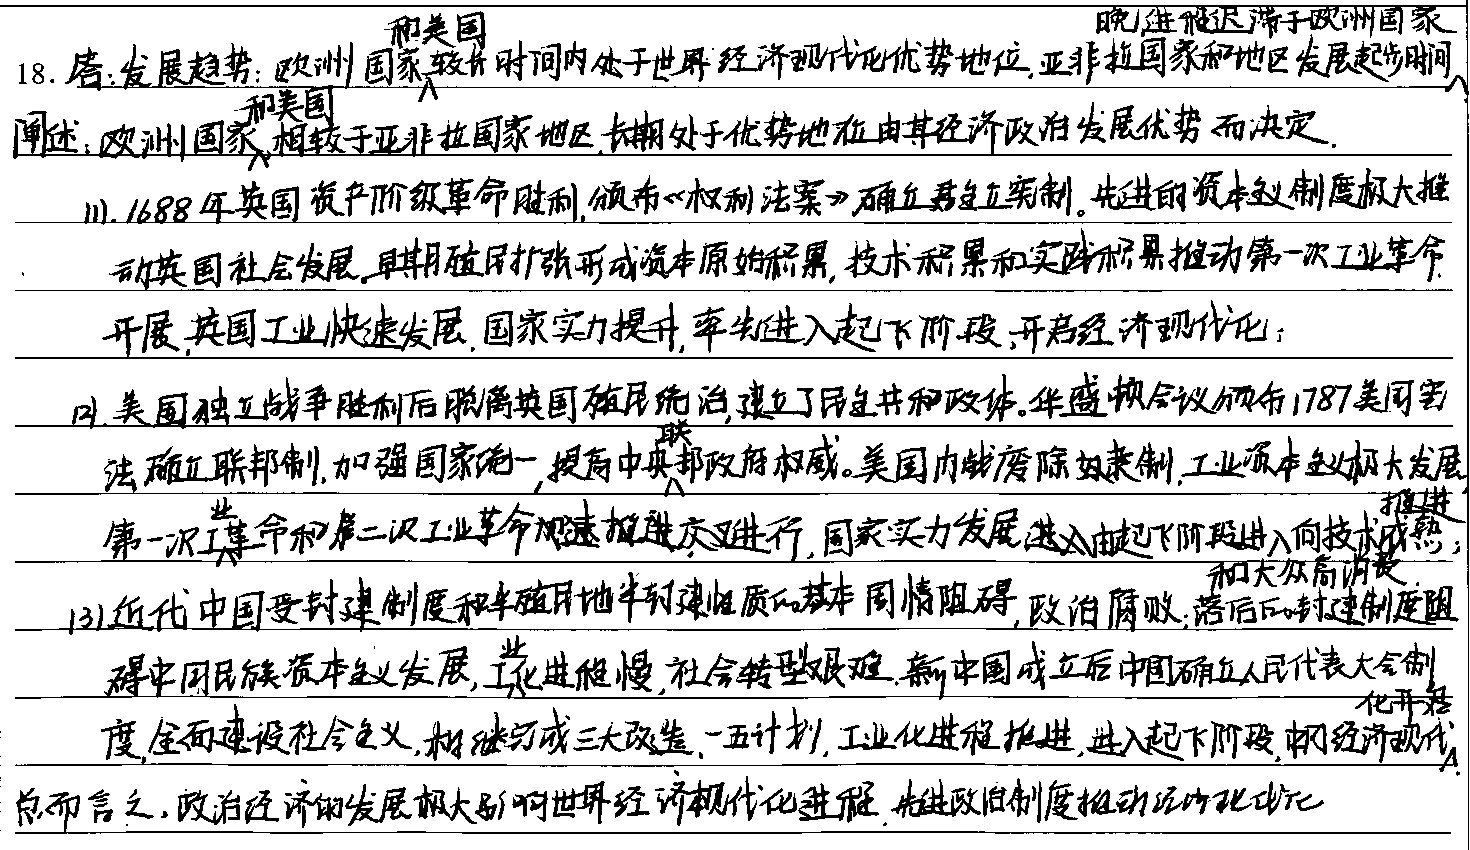 和美国 晚,进程迟滞于欧洲国家
18. 答:发展趋势:欧洲国家较长时间内处于世界经济现代化优势地位,亚非拉国家和地区发展起步时间
和美国
阐述:欧洲国家相较于亚非拉国家地区,长期处于优势地位由其经济政治发展优势而决定.
(1).1688年英国资产阶级革命胜利,颁布《权利法案》确立君主立宪制。先进的资本主义制度极大推
动英国社会发展.早期殖民扩张形成资本原始积累,技术积累和实践积累推动第一次工业革命
开展,英国工业快速发展,国家实力提升,率先进入起飞阶段,开启经济现代化;
(2).美国独立战争胜利后脱离英国殖民统治,建立了民主共和政体。华盛顿会议颁布1787美国宪
联
法确立联邦制,加强国家统一,提高中央邦政府权威。美国内战废除奴隶制,工业资本主义极大发展,
业 推进
第一次工革命和第二次工业革命加速推进交叉进行,国家实力发展,进入由起飞阶段进入向技术成熟;
和大众高消费
(3)近代中国受封建制度和半殖民地半封建性质的基本国情阻碍,政治腐败;落后的封建制度阻
业
碍中国民族资本主义发展,工化进程慢,社会转型艰难.新中国成立后中国确立人民代表大会制
化开启
度,全面建设社会主义,相继完成三大改造、一五计划,工业化进程推进,进入起飞阶段,中国经济现代.
总而言之,政治经济的发展极大影响世界经济现代化进程,先进政治制度推动经济现代化